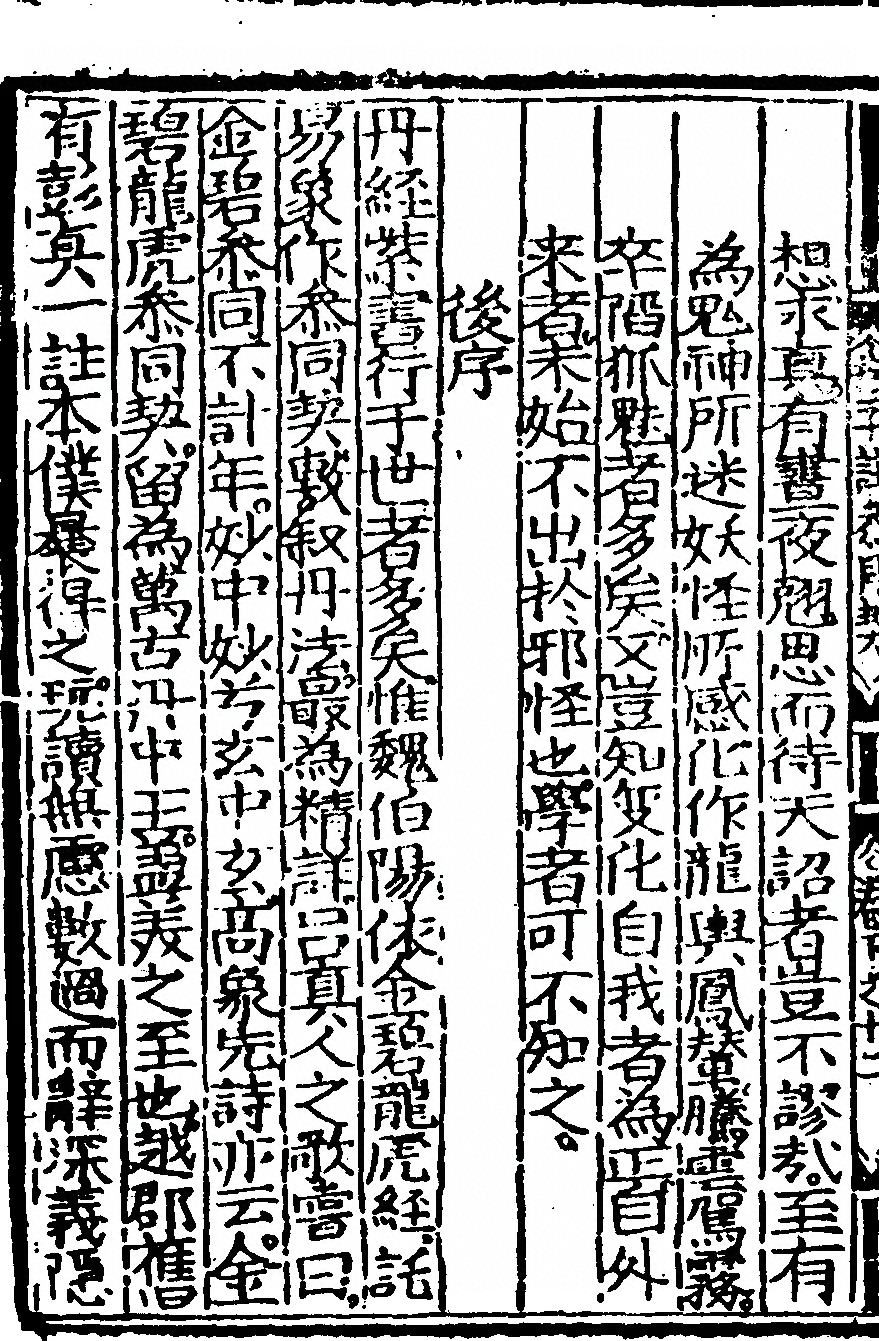 想求真有書夜翹思而待天詔者豈不謬哉至有
為鬼神所迷妖怪所惑化作龍輿鳳輦騰雲駕霧
卒陷狐魅者多矣又豈知変化自我者為正自外
来者未始不出扵邪怪也學者可不知之
後序
丹経紫書行于世者多矣惟魏伯陽依金碧龍虎経託
易象作参同契敷叙丹法最為精詳吕真人之歌嘗曰
金碧参同不計年妙中妙兮玄中玄高象先詩亦云金
碧龍虎参同契留為萬古丹中王蓋美之至也越郡舊
有彭真一註本僕曩得之玩讀無慮數過而辭深義隱